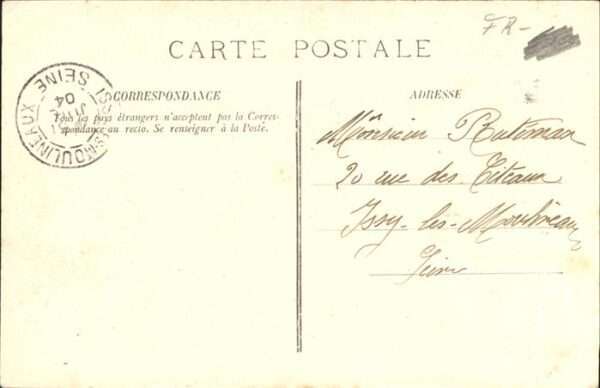 FR-
CARTE POSTALE
CORRESPONDANCE
Tous les pays étrangers n'acceptent pas la Corres-
pondance au recto. Se renseigner à la Poste.
ADRESSE
Monsieur
20 rue des
Issy-les-Moulineaux
Seine
ISSY-LES-MOULINEAUX
SEINE
04